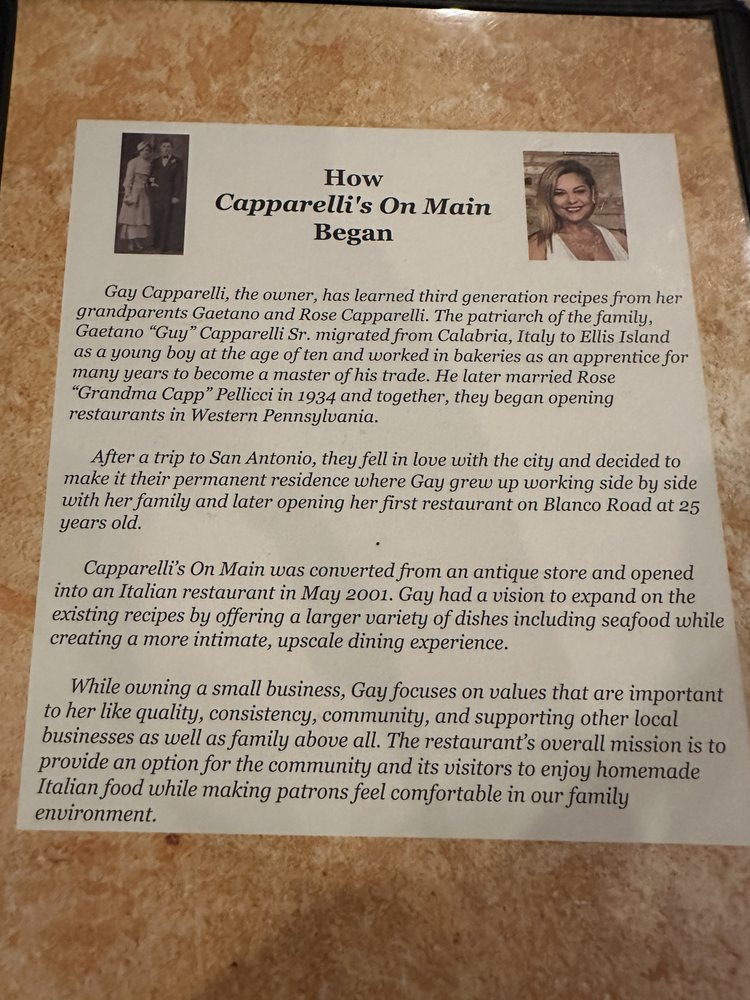 How
Capparelli's On Main
Began
Gay Capparelli, the owner, has learned third generation recipes from her
grandparents Gaetano and Rose Capparelli. The patriarch of the family,
Gaetano “Guy” Capparelli Sr. migrated from Calabria, Italy to Ellis Island
as a young boy at the age of ten and worked in bakeries as an apprentice for
many years to become a master of his trade. He later married Rose
“Grandma Capp” Pellicci in 1934 and together, they began opening
restaurants in Western Pennsylvania.
After a trip to San Antonio, they fell in love with the city and decided to
make it their permanent residence where Gay grew up working side by side
with her family and later opening her first restaurant on Blanco Road at 25
years old.
Capparelli’s On Main was converted from an antique store and opened
into an Italian restaurant in May 2001. Gay had a vision to expand on the
existing recipes by offering a larger variety of dishes including seafood while
creating a more intimate, upscale dining experience.
While owning a small business, Gay focuses on values that are important
to her like quality, consistency, community, and supporting other local
businesses as well as family above all. The restaurant’s overall mission is to
provide an option for the community and its visitors to enjoy homemade
Italian food while making patrons feel comfortable in our family
environment.